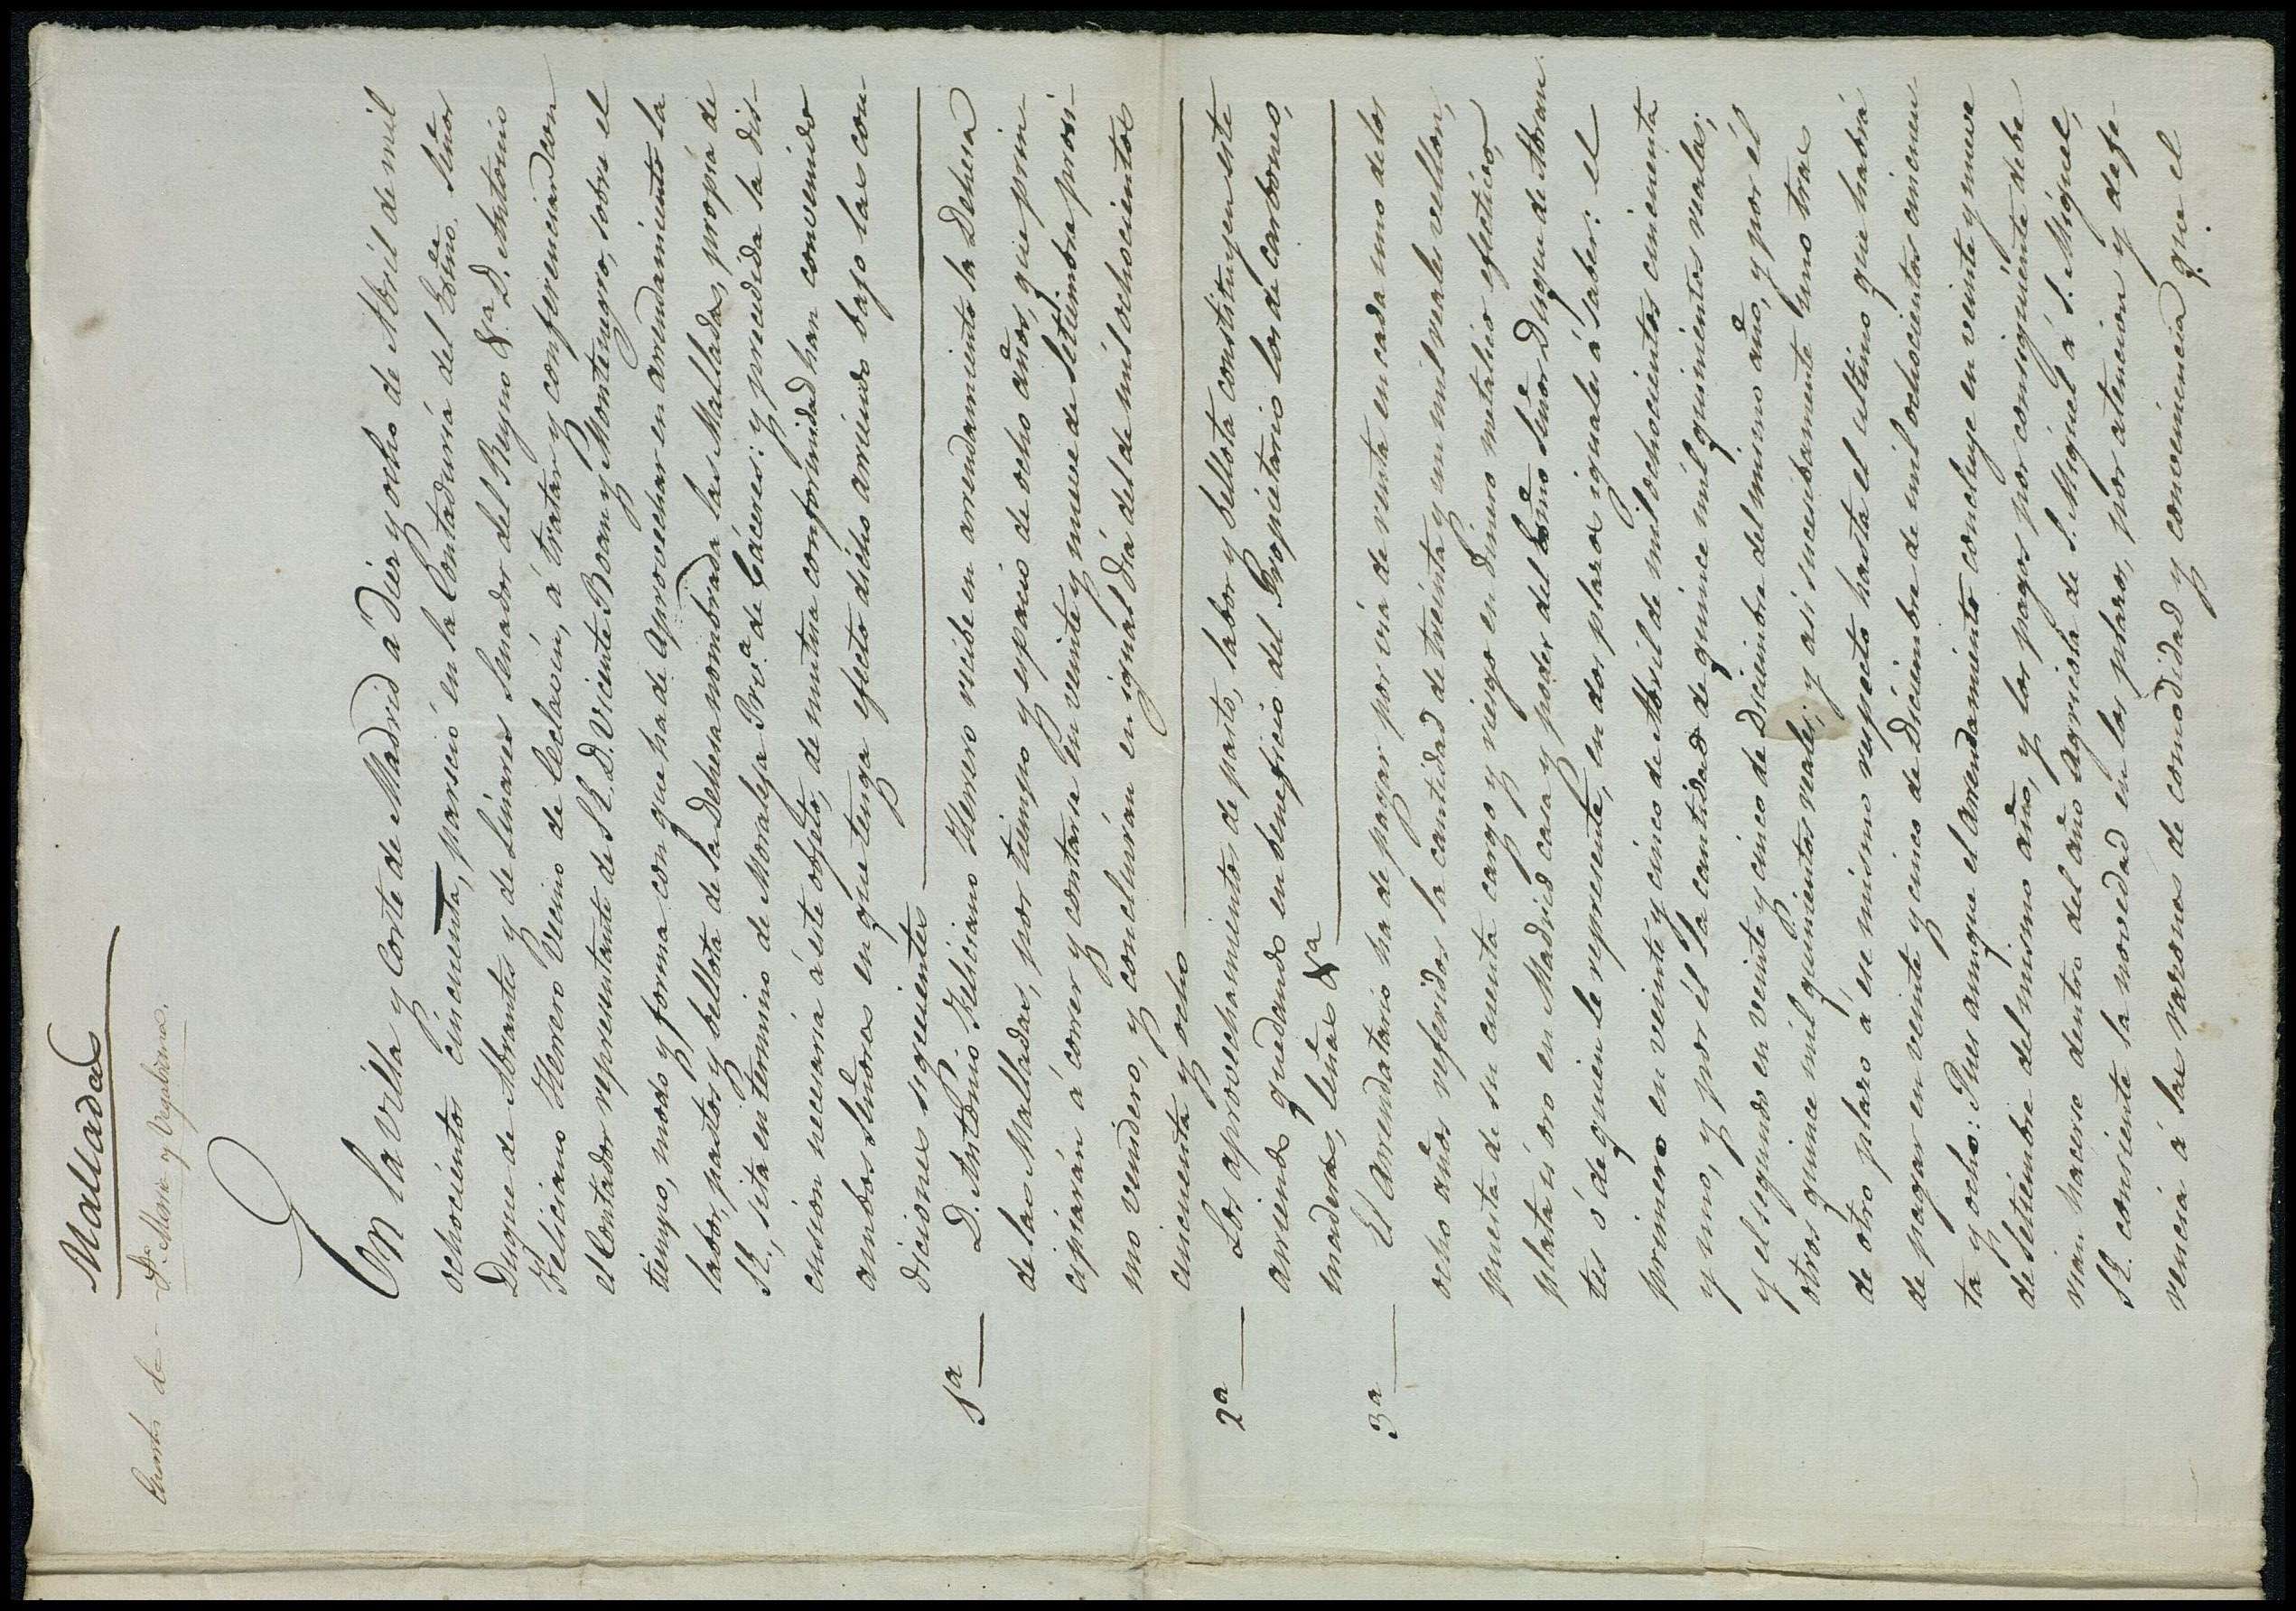 Malladas
Cuarto de
En la Villa y Corte de Madrid á diez y ocho de Abril de mil
ochocientos cincuenta, pareció en la Contaduría del Exmo. Señor
Duque de Abrantes y de Linares Senador del Reyno &a. D. Antonio
Feliciano Herrero Vecino de Ceclavin, á tratar y conferenciar con
el Contador representante de S.E. D. Vicente Bocan y Montenegro, sobre el
tiempo, modo y forma con que ha de aprovechar en arrendamiento la
labor, pastos y bellota de la Dehesa nombrada las Malladas, propia de
S.E., sita en termino de Moraleja Prov.a de Cáceres: y precedida la dis-
cusion necesaria á este objeto, de mutua conformidad han convenido
ambos Señores en que tenga efecto dicho arriendo bajo las con-
diciones siguientes
1a D. Antonio Feliciano Herrero recibe en arrendamiento la Dehesa
de las Malladas, por tiempo y espacio de ocho años, que prin-
cipiarán á correr y contarse en veinte y nueve de Setiembre prosi-
mo venidero, y concluirán en igual dia del de mil ochocientos
cincuenta y ocho
2a Los aprovechamientos de pasto, labor y bellota constituyen este
arriendo quedando en beneficio del Propietario los de carboneo,
maderas, leñas &a
3a El arrendatario ha de pagar por via de renta en cada uno de los
ocho años referidos la cantidad de treinta y un mil reales vellon,
puesta de su cuenta cargo y riesgo en dinero metalico efectivo,
plata ú oro en Madrid casa y poder del Exmo Señor Duque de Abran-
tes ó de quien le represente, en dos plazos iguales á saber: el
primero en veinte y cinco de Abril de mil ochocientos cincuenta
y uno, y por él la cantidad de quince mil quinientos reales;
y el segundo en veinte y cinco de Diciembre del mismo año, y por él
otros quince mil quinientos reales; y asi sucesibamente uno tras
de otro plazo á ese mismo respecto hasta el ultimo que habrá
de pagar en veinte y cinco de Diciembre de mil ochocientos cincuen
ta y ocho: Pues aunque el arrendamiento concluye en veinte y nueve
de Setiembre del mismo año, y los pagos por consiguiente debe
rian hacerse dentro del año agricola de S. Miguel á S. Miguel,
S.E. consiente la novedad en los plazos, por atencion y defe-
rencia á las razones de comodidad y conveniencia que el